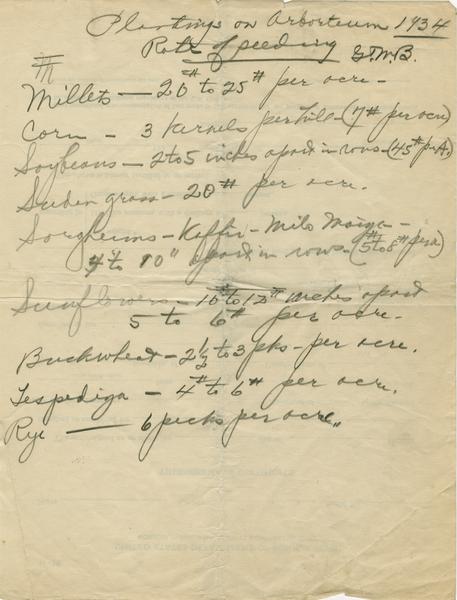 Plantings on Arboretum 1934
Rate of seeding G.M.B.
Millets — 20# to 25# per acre -
Corn - 3 kernels per hill - (7# per acre)
Soybeans — 2 to 5 inches apart in rows - (45# per A.)
Sudan grass - 20# per acre.
Sorghums - Kaffir - Milo Maize -
4 to 10" apart in rows - (5# to 8# per a)
Sunflowers - 10" to 12" inches apart
5 to 6# per acre -
Buckwheat - 2½ to 3 pks - per acre.
Lespediza - 4# to 6# per acre.
Rye — 6 pecks per acre.